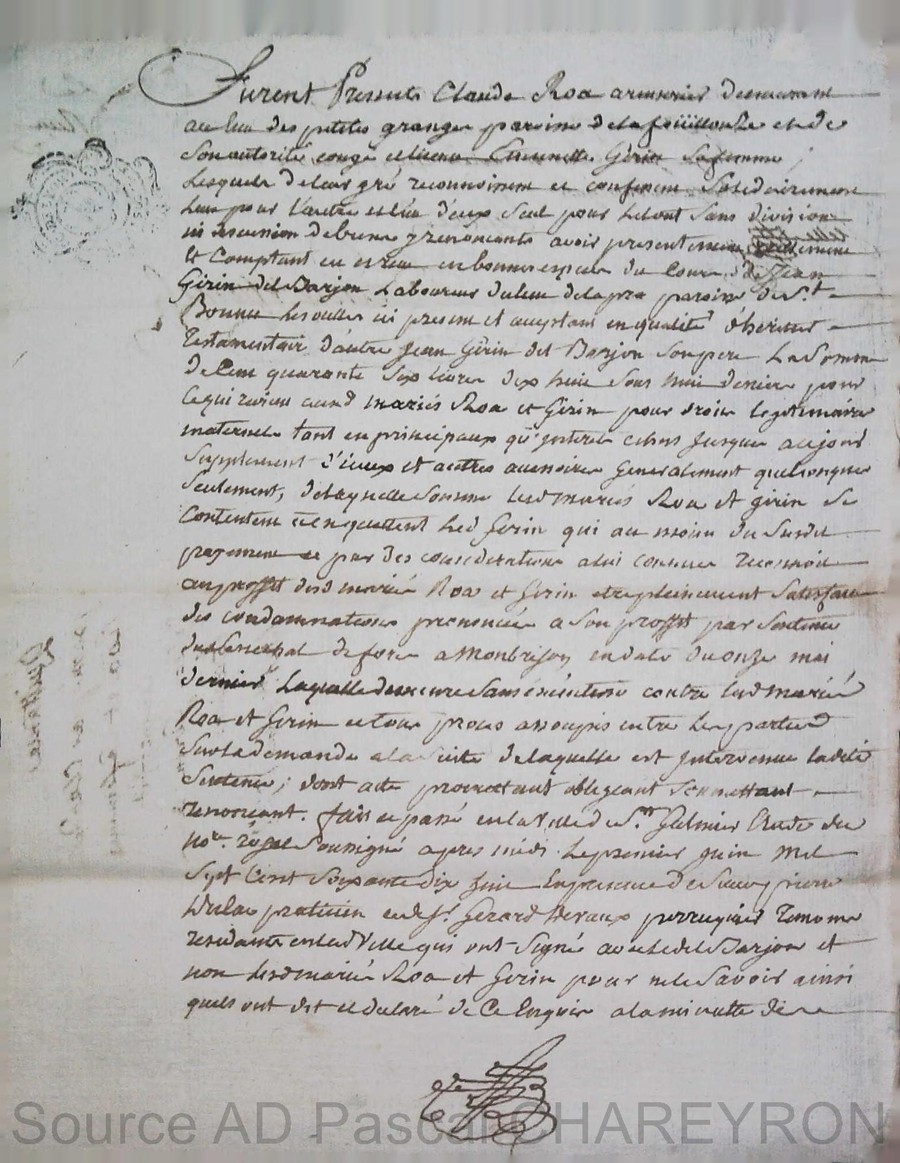 Furent Presents Claude Roa armurier demeurant
au lieu des petites granges paroisse de la fouillouse et de
son autorité congé et licence Gerin sa femme ;
Lesquels de leur gré reconnoissent et confessent solidairement
l'un pour l'autre et l'un d'eux seul pour le tout sans division
ni y renoncants avoir presentement
et comptant eu et reçu en bonnes especes du cours de Jean
Gerin dit Barjon Laboureur du lieu de la pra paroisse de St.
Bonnet les oulles ici present et acceptant en qualité d'heritier
Testamentair d'autre Jean Gerin dit Barjon son pere La Somme
de Cent quarante six livres dix huit sous huit deniers pour
ce qui revient auxd mariés Roa et Gerin pour droits legitimaires
maternels tant en principaux qu'interets echus jusques au jour
Supplement d'iceux et autres accessoires Generalement quelconques
seulement, de laquelle somme lesd mariés Roa et Gerin se
Contentent et en quittent led Gerin qui au moien du susdit
payement et par des considerations a lui connues reconnoit
au proffit desd mariés Roa et Gerin etre pleinement satisfait
des condamnations prononcées a son proffit par sentence
de forez a Montbrison en date du onze mai
dernier laquelle demeure sans execution contre lesd mariés
Roa et Gerin et tous procès assoupis entre les parties
sur la demande a la suite de laquelle est intervenue ladite
sentence ; dont acte promettant obligeant soumettant
renoncant. fait et passé en la Ville de St. Galmier Etude du
nore. royal soussigné apres midi le premier juin mil
sept Cent soixante dix huit En presence de sieur pierre
praticien et de sr. Gerard Devaux perruquier temoins
residants en lad Ville qui ont signé avec ledit Barjon et
non lesd mariés Roa et Gerin pour ne le savoir ainsi
quils ont dit et declaré de ce Enquis a la minutte
Source AD Pascal CHAREYRON